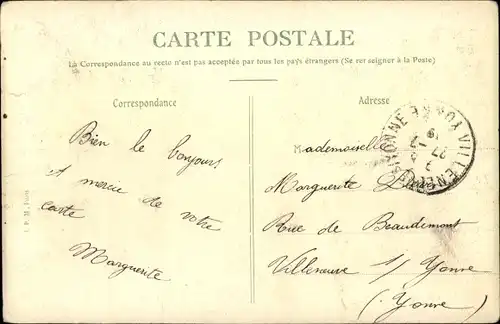 CARTE POSTALE
La Correspondance au recto n'est pas acceptée par tous les pays étrangers (Se renseigner à la Poste)
Correspondance
Adresse
Bien le bonjour
et merci de votre
carte
Marguerite
Mademoiselle
Marguerite
Rue de Beaudemont
Villeneuve s/ Yonne
(Yonne)